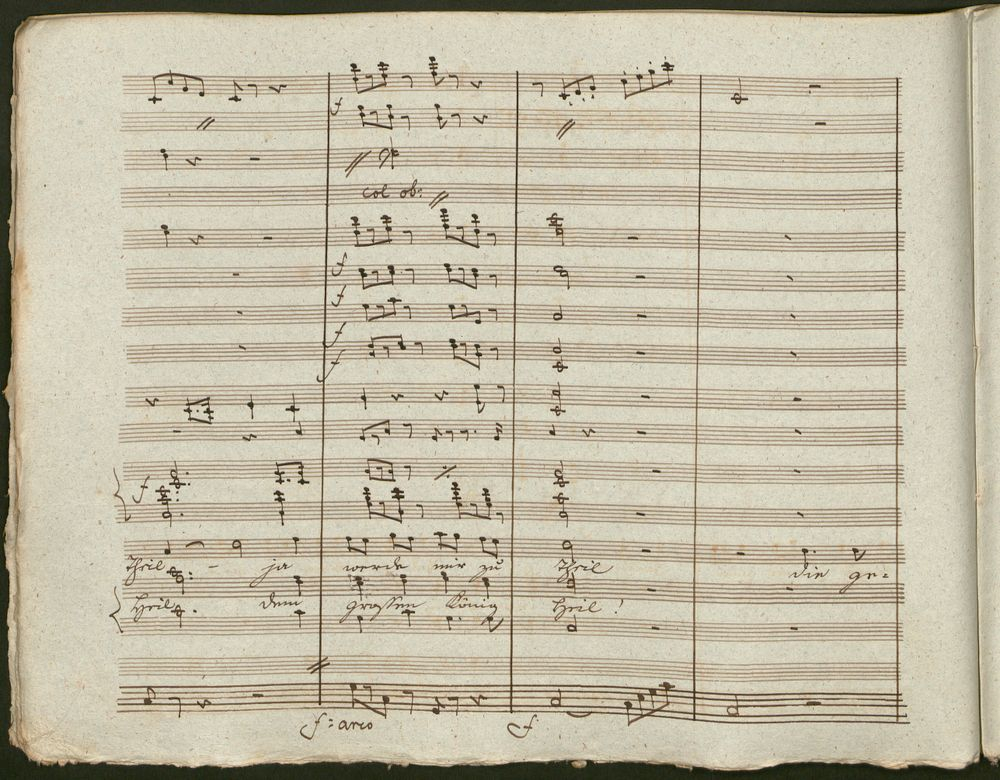 f
col ob:
f
f
f
f
f
Theil - ja werde mir zu Theil die ge=
Heil. dem grossen König Heil!
f: arco
f